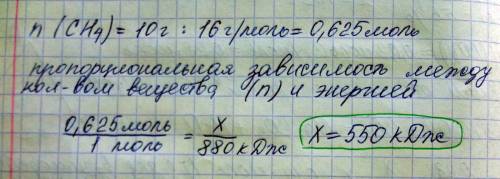 n (CH4) = 10 г : 16 г/моль = 0,625 моль
пропорциональная зависимость между
кол-вом вещества (n) и энергией
0,625 моль / 1 моль = X / 880 кДж X = 550 кДж